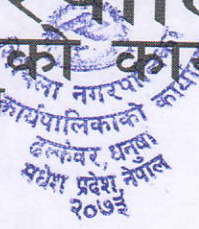 को का
नगरपा
कार्यपालिकाको कार्या
ढल्केवर, धनुषा
मधेश प्रदेश, नेपाल
२०७३